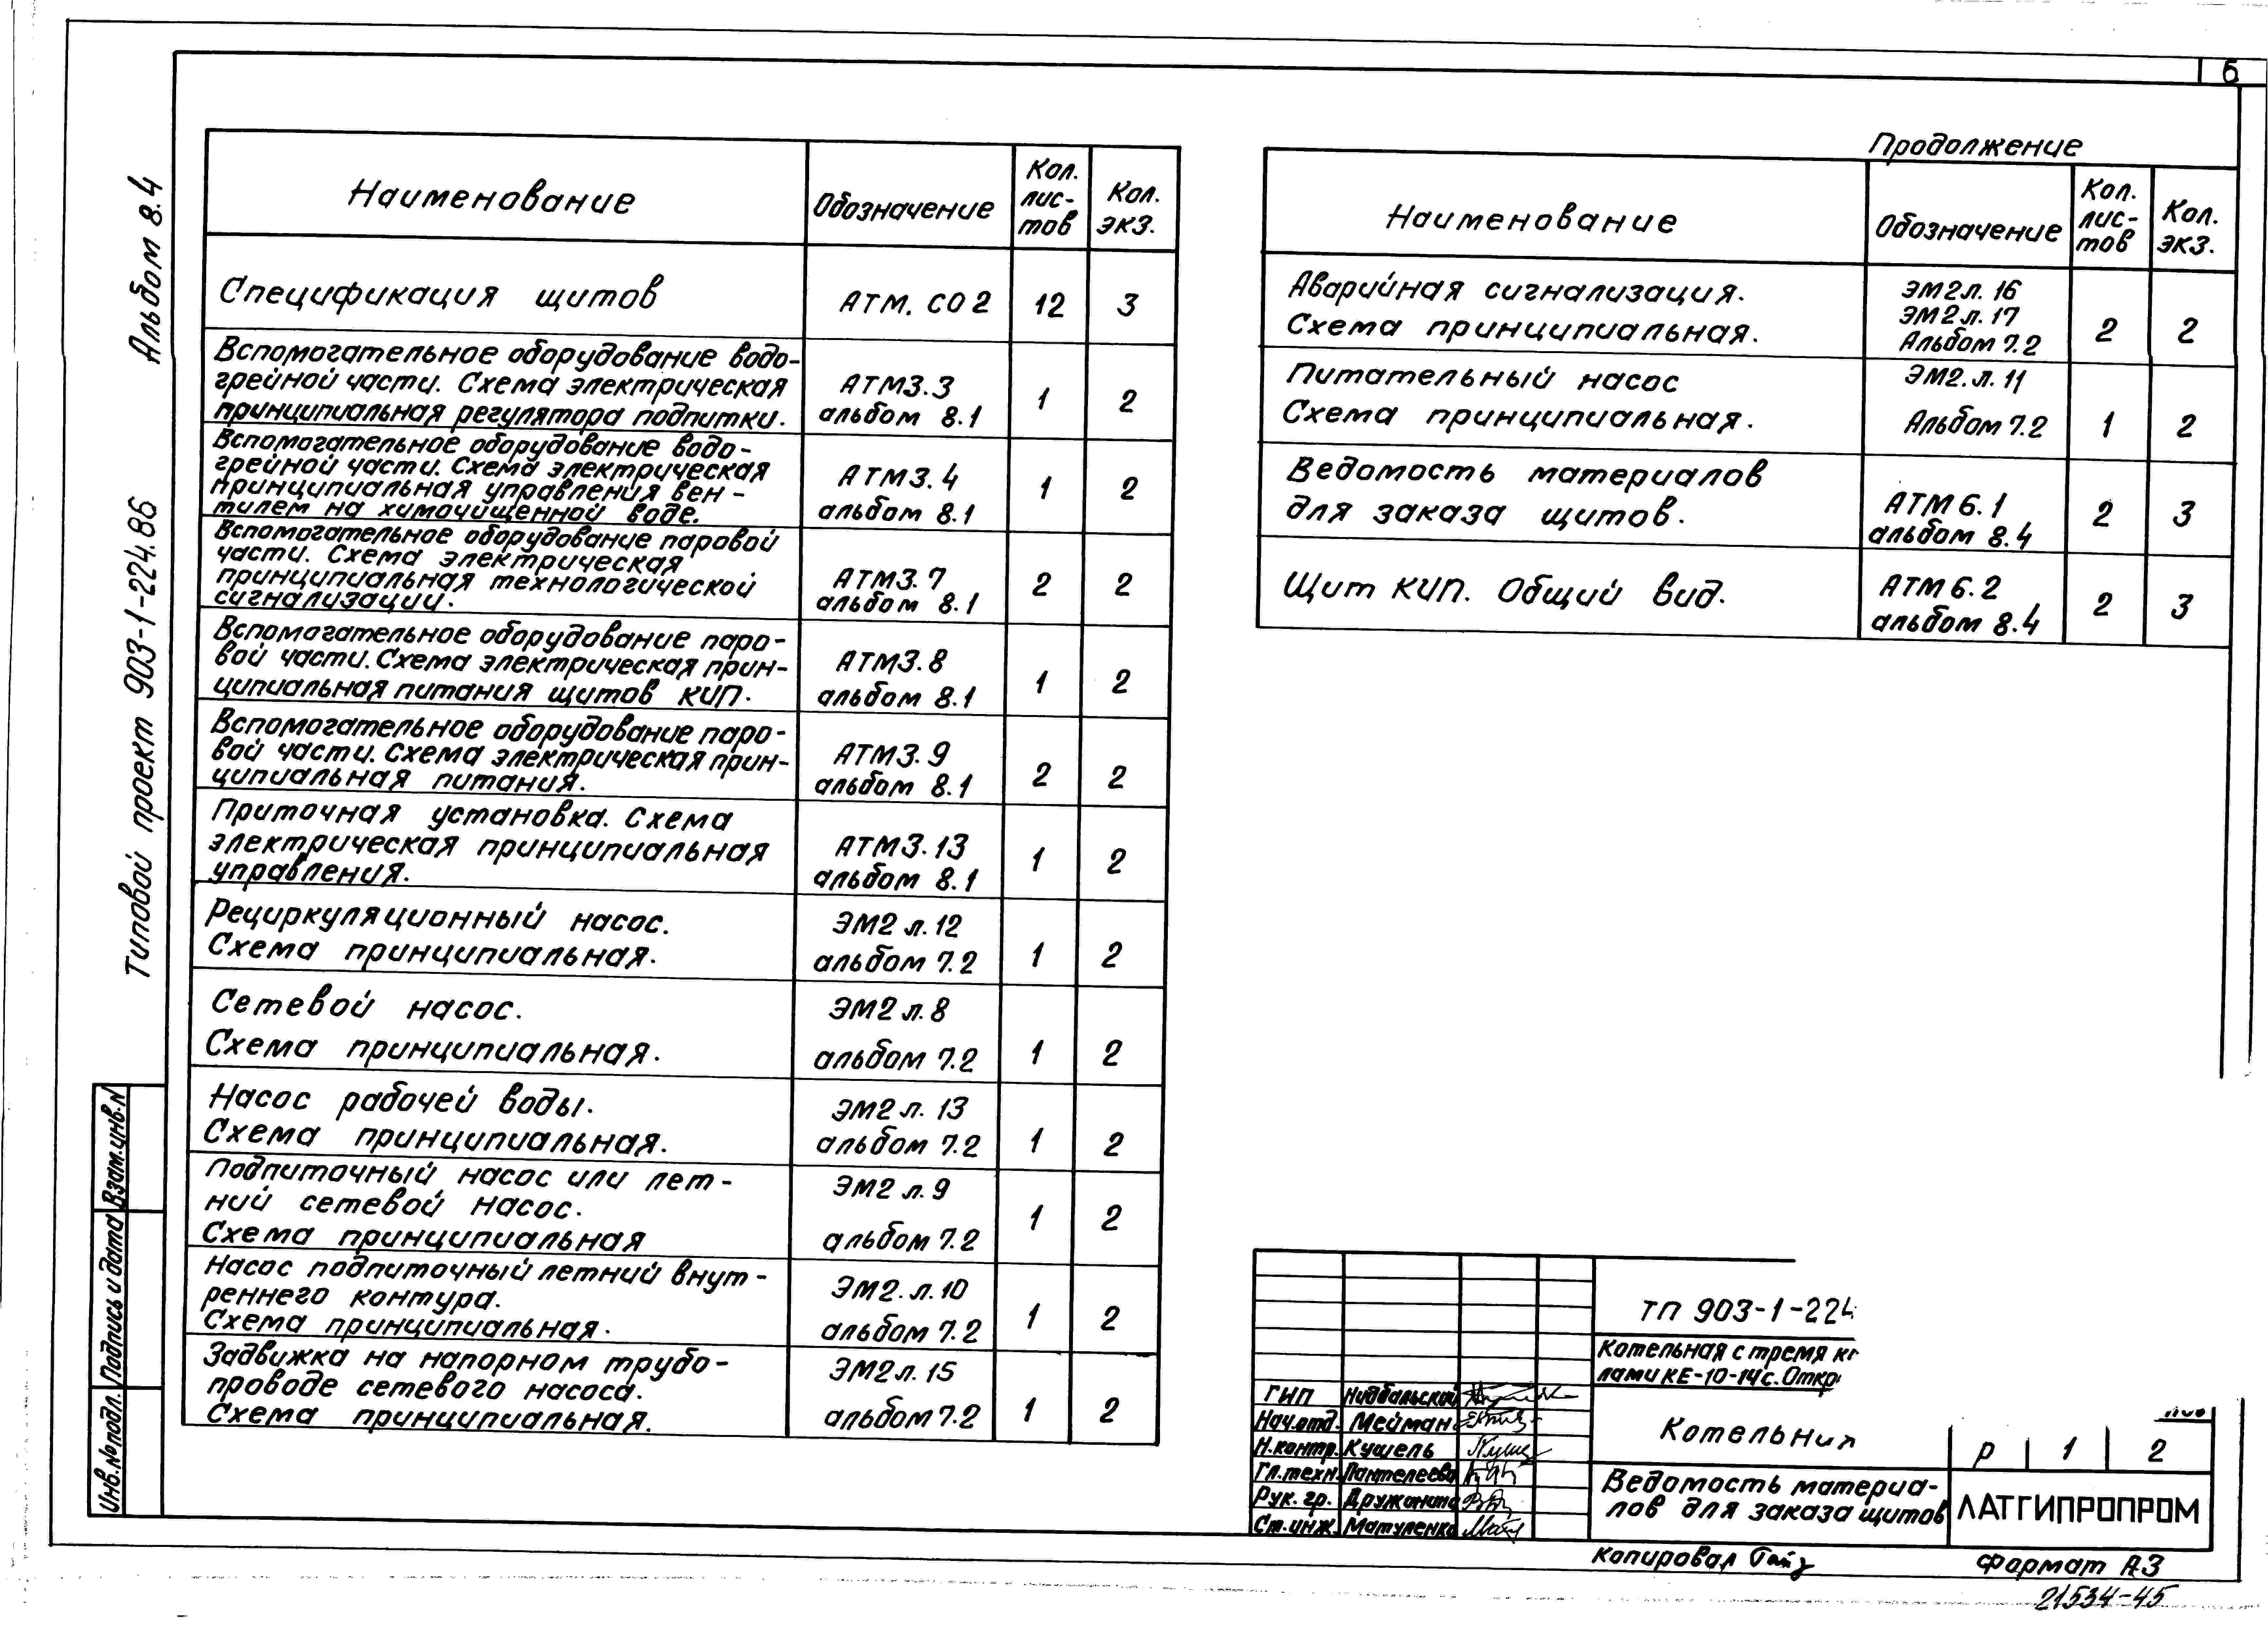 6
Альбом 8.4
Типовой проект 903-1-224.86
Наименование
Обозначение
Кол.
лис-
тов
Кол.
экз.
Спецификация щитов
АТМ. СО 2
12
3
Вспомогательное оборудование водо-
грейной части. Схема электрическая
принципиальная регулятора подпитки.
АТМ3.3
альбом 8.1
1
2
Вспомогательное оборудование водо-
грейной части. Схема электрическая
принципиальная управления вен-
тилем на химочищенной воде.
АТМ3.4
альбом 8.1
1
2
Вспомогательное оборудование паровой
части. Схема электрическая
принципиальная технологической
сигнализации.
АТМ3.7
альбом 8.1
2
2
Вспомогательное оборудование паро-
вой части. Схема электрическая прин-
ципиальная питания щитов КИП.
АТМ3.8
альбом 8.1
1
2
Вспомогательное оборудование паро-
вой части. Схема электрическая прин-
ципиальная питания.
АТМ3.9
альбом 8.1
2
2
Приточная установка. Схема
электрическая принципиальная
управления.
АТМ3.13
альбом 8.1
1
2
Рециркуляционный насос.
Схема принципиальная.
ЭМ2 л.12
альбом 7.2
1
2
Сетевой насос.
Схема принципиальная.
ЭМ2 л.8
альбом 7.2
1
2
Насос рабочей воды.
Схема принципиальная.
ЭМ2 л. 13
альбом 7.2
1
2
Подпиточный насос или лет-
ний сетевой насос.
Схема принципиальная
ЭМ2 л.9
альбом 7.2
1
2
Насос подпиточный летний внут-
реннего контура.
Схема принципиальная.
ЭМ2. л.10
альбом 7.2
1
2
Задвижка на напорном трубо-
проводе сетевого насоса.
Схема принципиальная.
ЭМ2 л. 15
альбом 7.2
1
2
Продолжение
Наименование
Обозначение
Кол.
лис-
тов
Кол.
экз.
Аварийная сигнализация.
Схема принципиальная.
ЭМ2 л. 16
ЭМ2 л. 17
Альбом 7.2
2
2
Питательный насос
Схема принципиальная.
ЭМ2. л. 11
Альбом 7.2
1
2
Ведомость материалов
для заказа щитов.
АТМ 6.1
альбом 8.4
2
3
Щит КИП. Общий вид.
АТМ 6.2
альбом 8.4
2
3
Взам.инв.N
Подпись и дата
Инв.№ подл.
ТП 903-1-224
Котельная с тремя
лами КЕ-10-14с. Откр
ГИП Нидбальский
Нач.отд. Мейман
Н.контр. Кушель
Гл.техн. Пантелеева
Рук. гр.
Ст.инж. Матуленко
Котельная
Р 1 2
Ведомость материа-
лов для заказа щитов
ЛАТГИПРОПРОМ
Копировал
Формат А3
21534-45